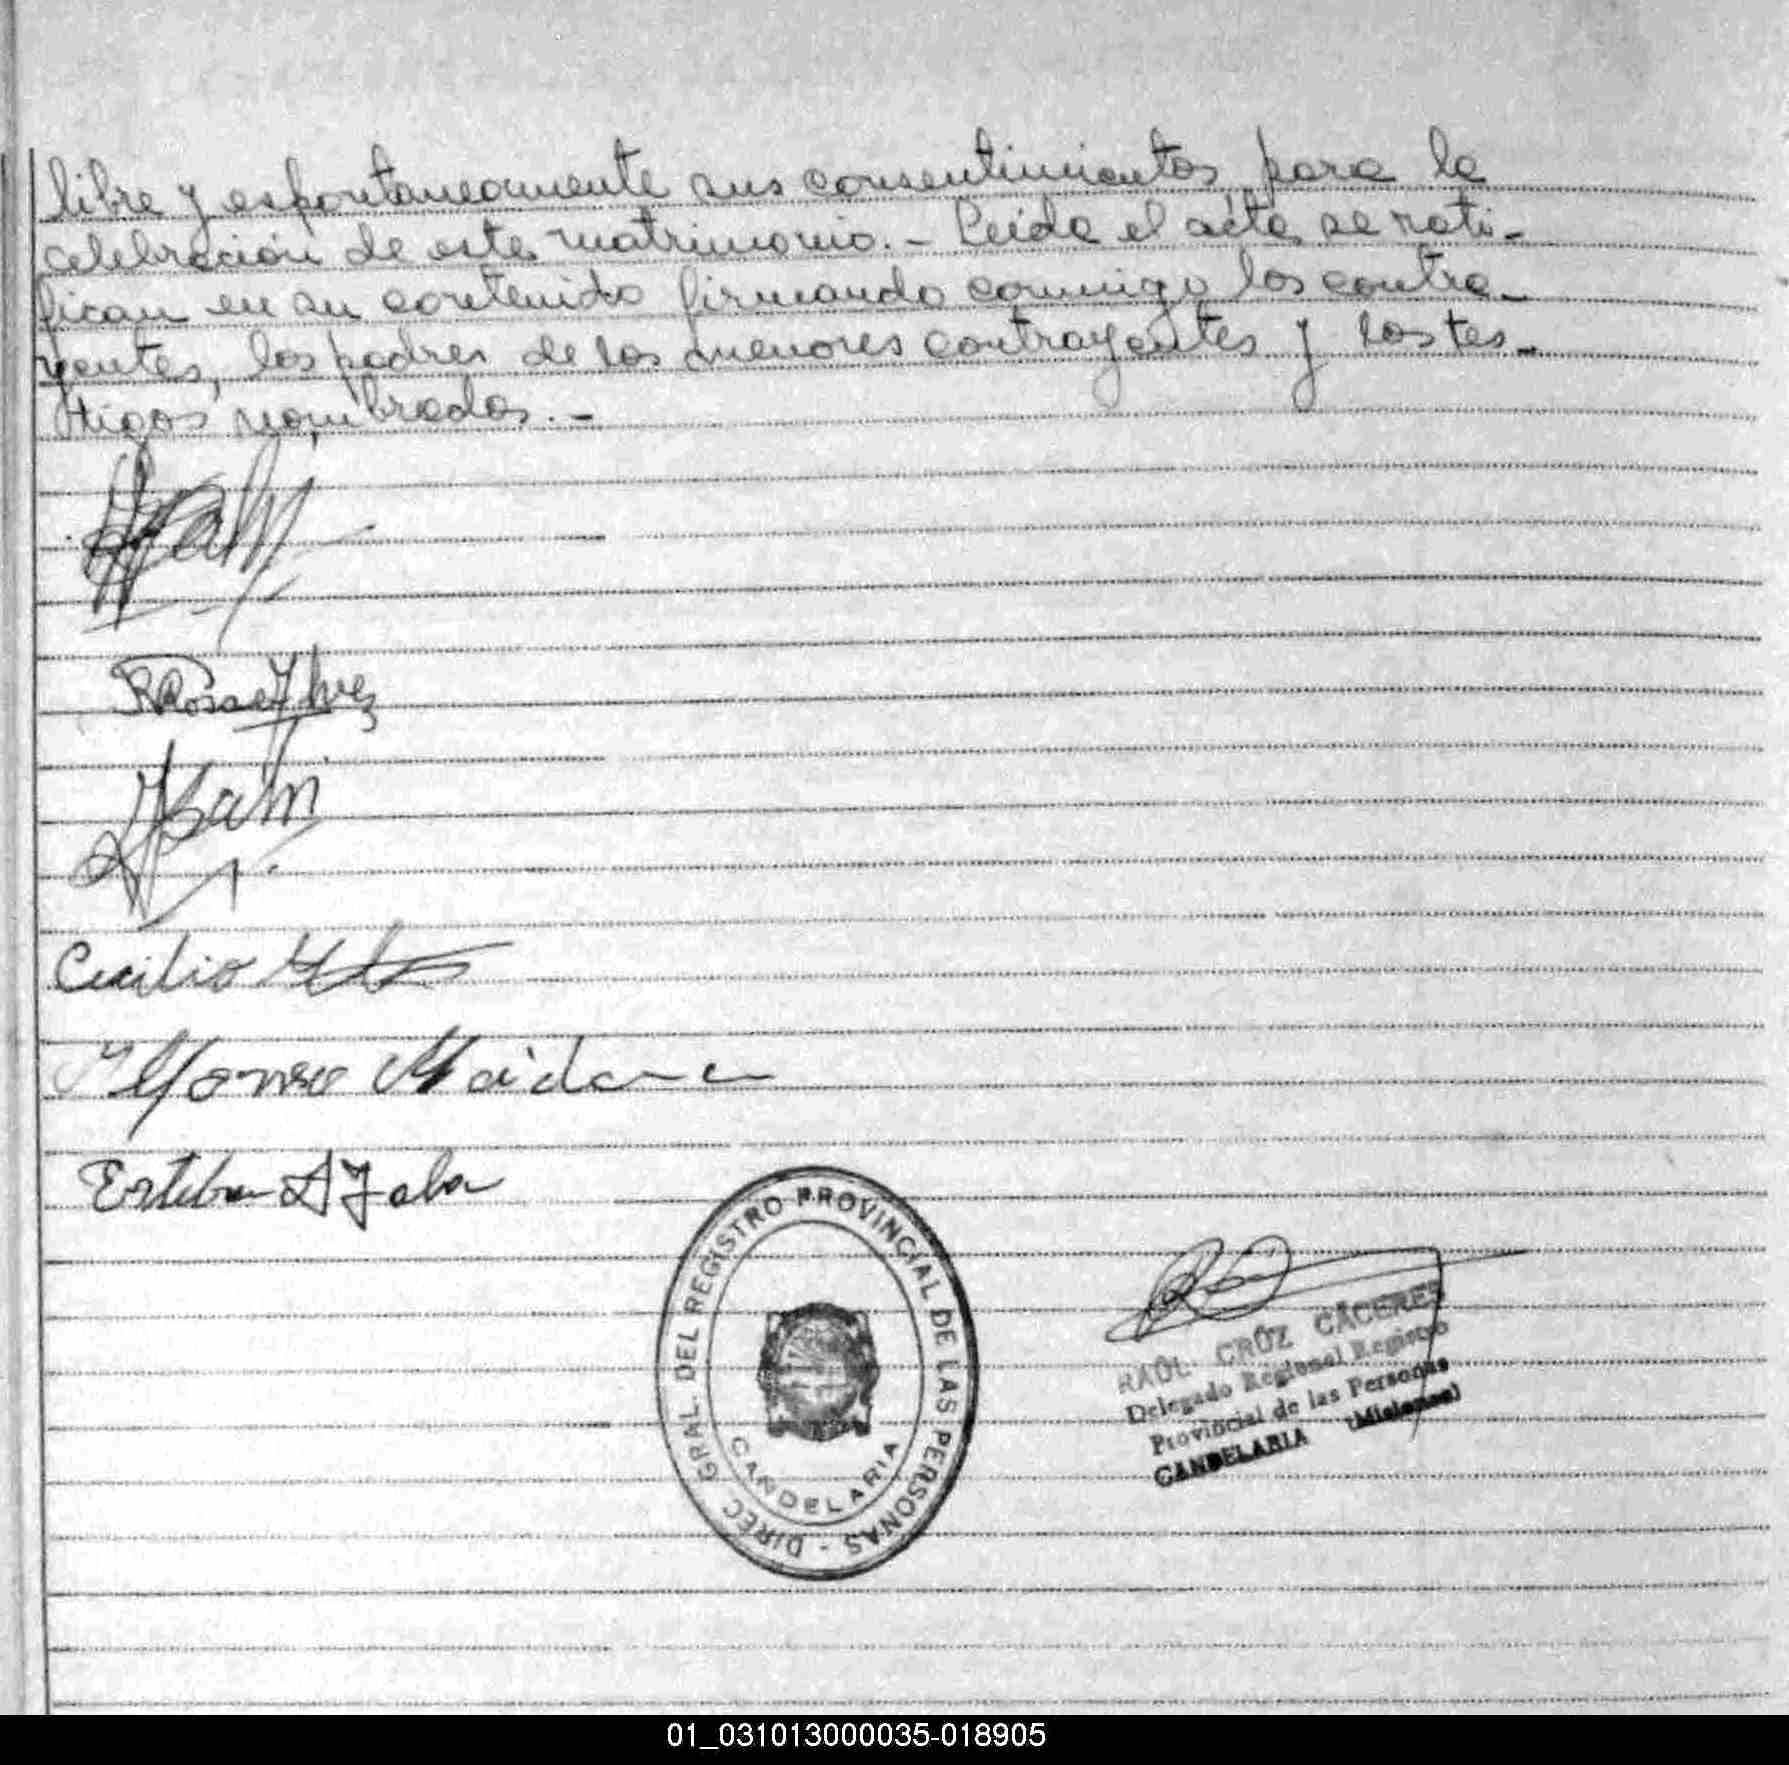 libre y espontaneamente sus consentimientos para la
celebración de este matrimonio.- Leída el acta se rati-
fican en su contenido firmando conmigo los contra-
yentes, los padres de los menores contrayentes y los tes-
tigos nombrados.-
Cecilio
Alfonso Maidana
Esteban
DIREC. GRAL. DEL REGISTRO PROVINCIAL DE LAS PERSONAS -
CANDELARIA
RAÚL CRUZ CÁCERES
Delegado Regional Registro
Provincial de las Personas
CANDELARIA (Misiones)
01_031013000035-018905